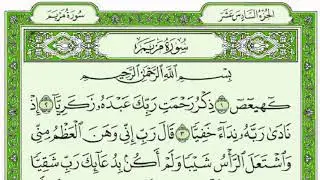 سُورَةُ مَرْيَمَ
الجُزءُ السَّادِسَ عَشَرَ
سُورَةُ مَرْيَمَ
بِسْمِ اللَّهِ الرَّحْمَٰنِ الرَّحِيمِ
كٓهيعٓصٓ ١ ذِكْرُ رَحْمَتِ رَبِّكَ عَبْدَهُۥ زَكَرِيَّآ ٢ إِذْ
نَادَىٰ رَبَّهُۥ نِدَآءً خَفِيًّا ٣ قَالَ رَبِّ إِنِّى وَهَنَ ٱلْعَظْمُ مِنِّى
وَٱشْتَعَلَ ٱلرَّأْسُ شَيْبًا وَلَمْ أَكُنۢ بِدُعَآئِكَ رَبِّ شَقِيًّا